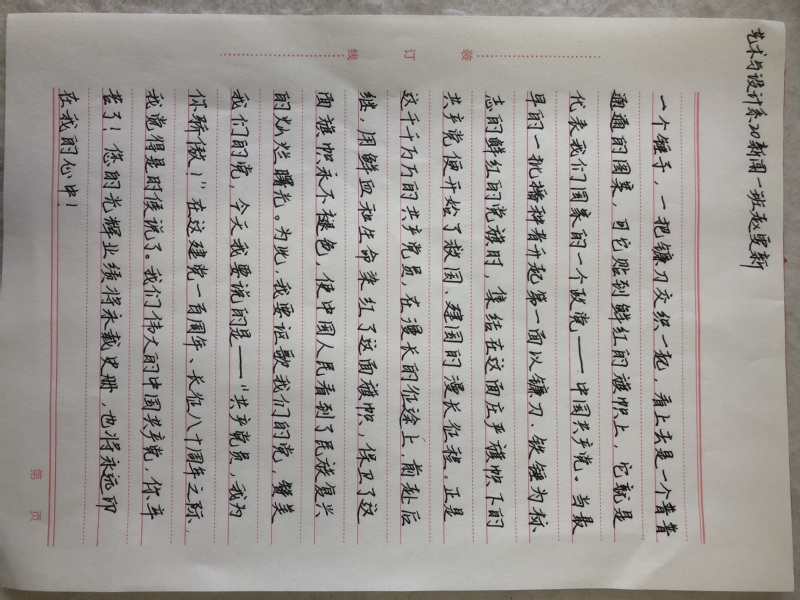 艺术与设计系20新闻一班赵更新
装 订 线
一个锤子，一把镰刀交织一起，看上去是一个普普
通通的图案，可它贴到鲜红的旗帜上，它就是
代表我们国家的一个政党——中国共产党。当最
早的一批播种者升起第一面以镰刀、铁锤为标
志的鲜红的党旗时，集结在这面庄严旗帜下的
共产党便开始了救国、建国的漫长征程。正是
这千千万万的共产党员，在漫长的征途上，前赴后
继，用鲜血和生命染红了这面旗帜，保卫了这
面旗帜永不褪色，使中国人民看到了民族复兴
的灿烂曙光。为此，我要讴歌我们的党，赞美
我们的党，今天我要说的是——“共产党员，我为
你骄傲！”在这建党一百周年、长征八十周年之际，
我觉得是时候说了。我们伟大的中国共产党，你辛
苦了！您的光辉业绩将永载史册，也将永远印
在我的心中！
第 页